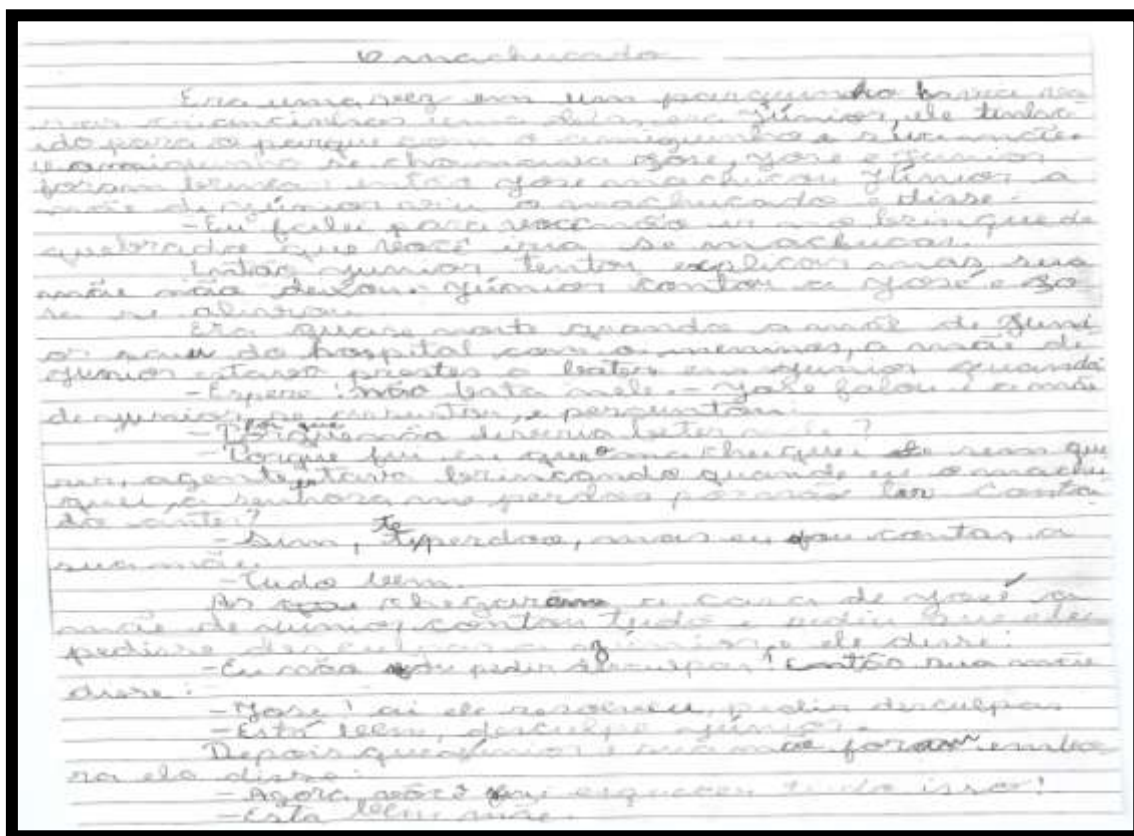 O machucado
Era uma vez em um parquinho havia va
rias criancinhas uma delas era Júnior, ele tinha
ido para o parque com o amiguinho e sua mãe.
o amiguinho se chamava José, José e Junior
foram brincar então José machucou Júnior a
mãe de Júnior viu o machucado e disse:
- Eu falei para você não ir no brinquedo
quebrado que você iria se machucar.
Então Junior tentou explicar mas sua
mãe não deixou. Júnior contou a José e Jo
se se
Era quase noite quando a mãe de Juni
or saiu do hospital com o meninos, a mãe de
Junior estava prestes a bater em Junior quando
- Espere! não bata nele. - José falou e a mãe
de Junior se assustou, e perguntou:
- Por que não deveria bater nele?
- Porque fui eu que o machuquei sem que
rer, agente estava brincando quando eu o machu
quei, a senhora me perdoa por não ter conta
do antes?
- Sim, te perdoo, mas eu vou contar a
sua mãe.
- Tudo bem.
As chegaram a casa de José a
mãe de Júnior contou tudo e pediu que ele
pedisse desculpas a Júnior e ele disse:
- Eu não vou pedir desculpas! Então sua mãe
disse:
- José! ai ele resolveu pedir desculpas
- Está bem, desculpe Júnior.
Depois que Júnior e sua mãe foram embo
ra ela disse:
- Agora você esquecer tudo isso!
- Esta bem mãe.